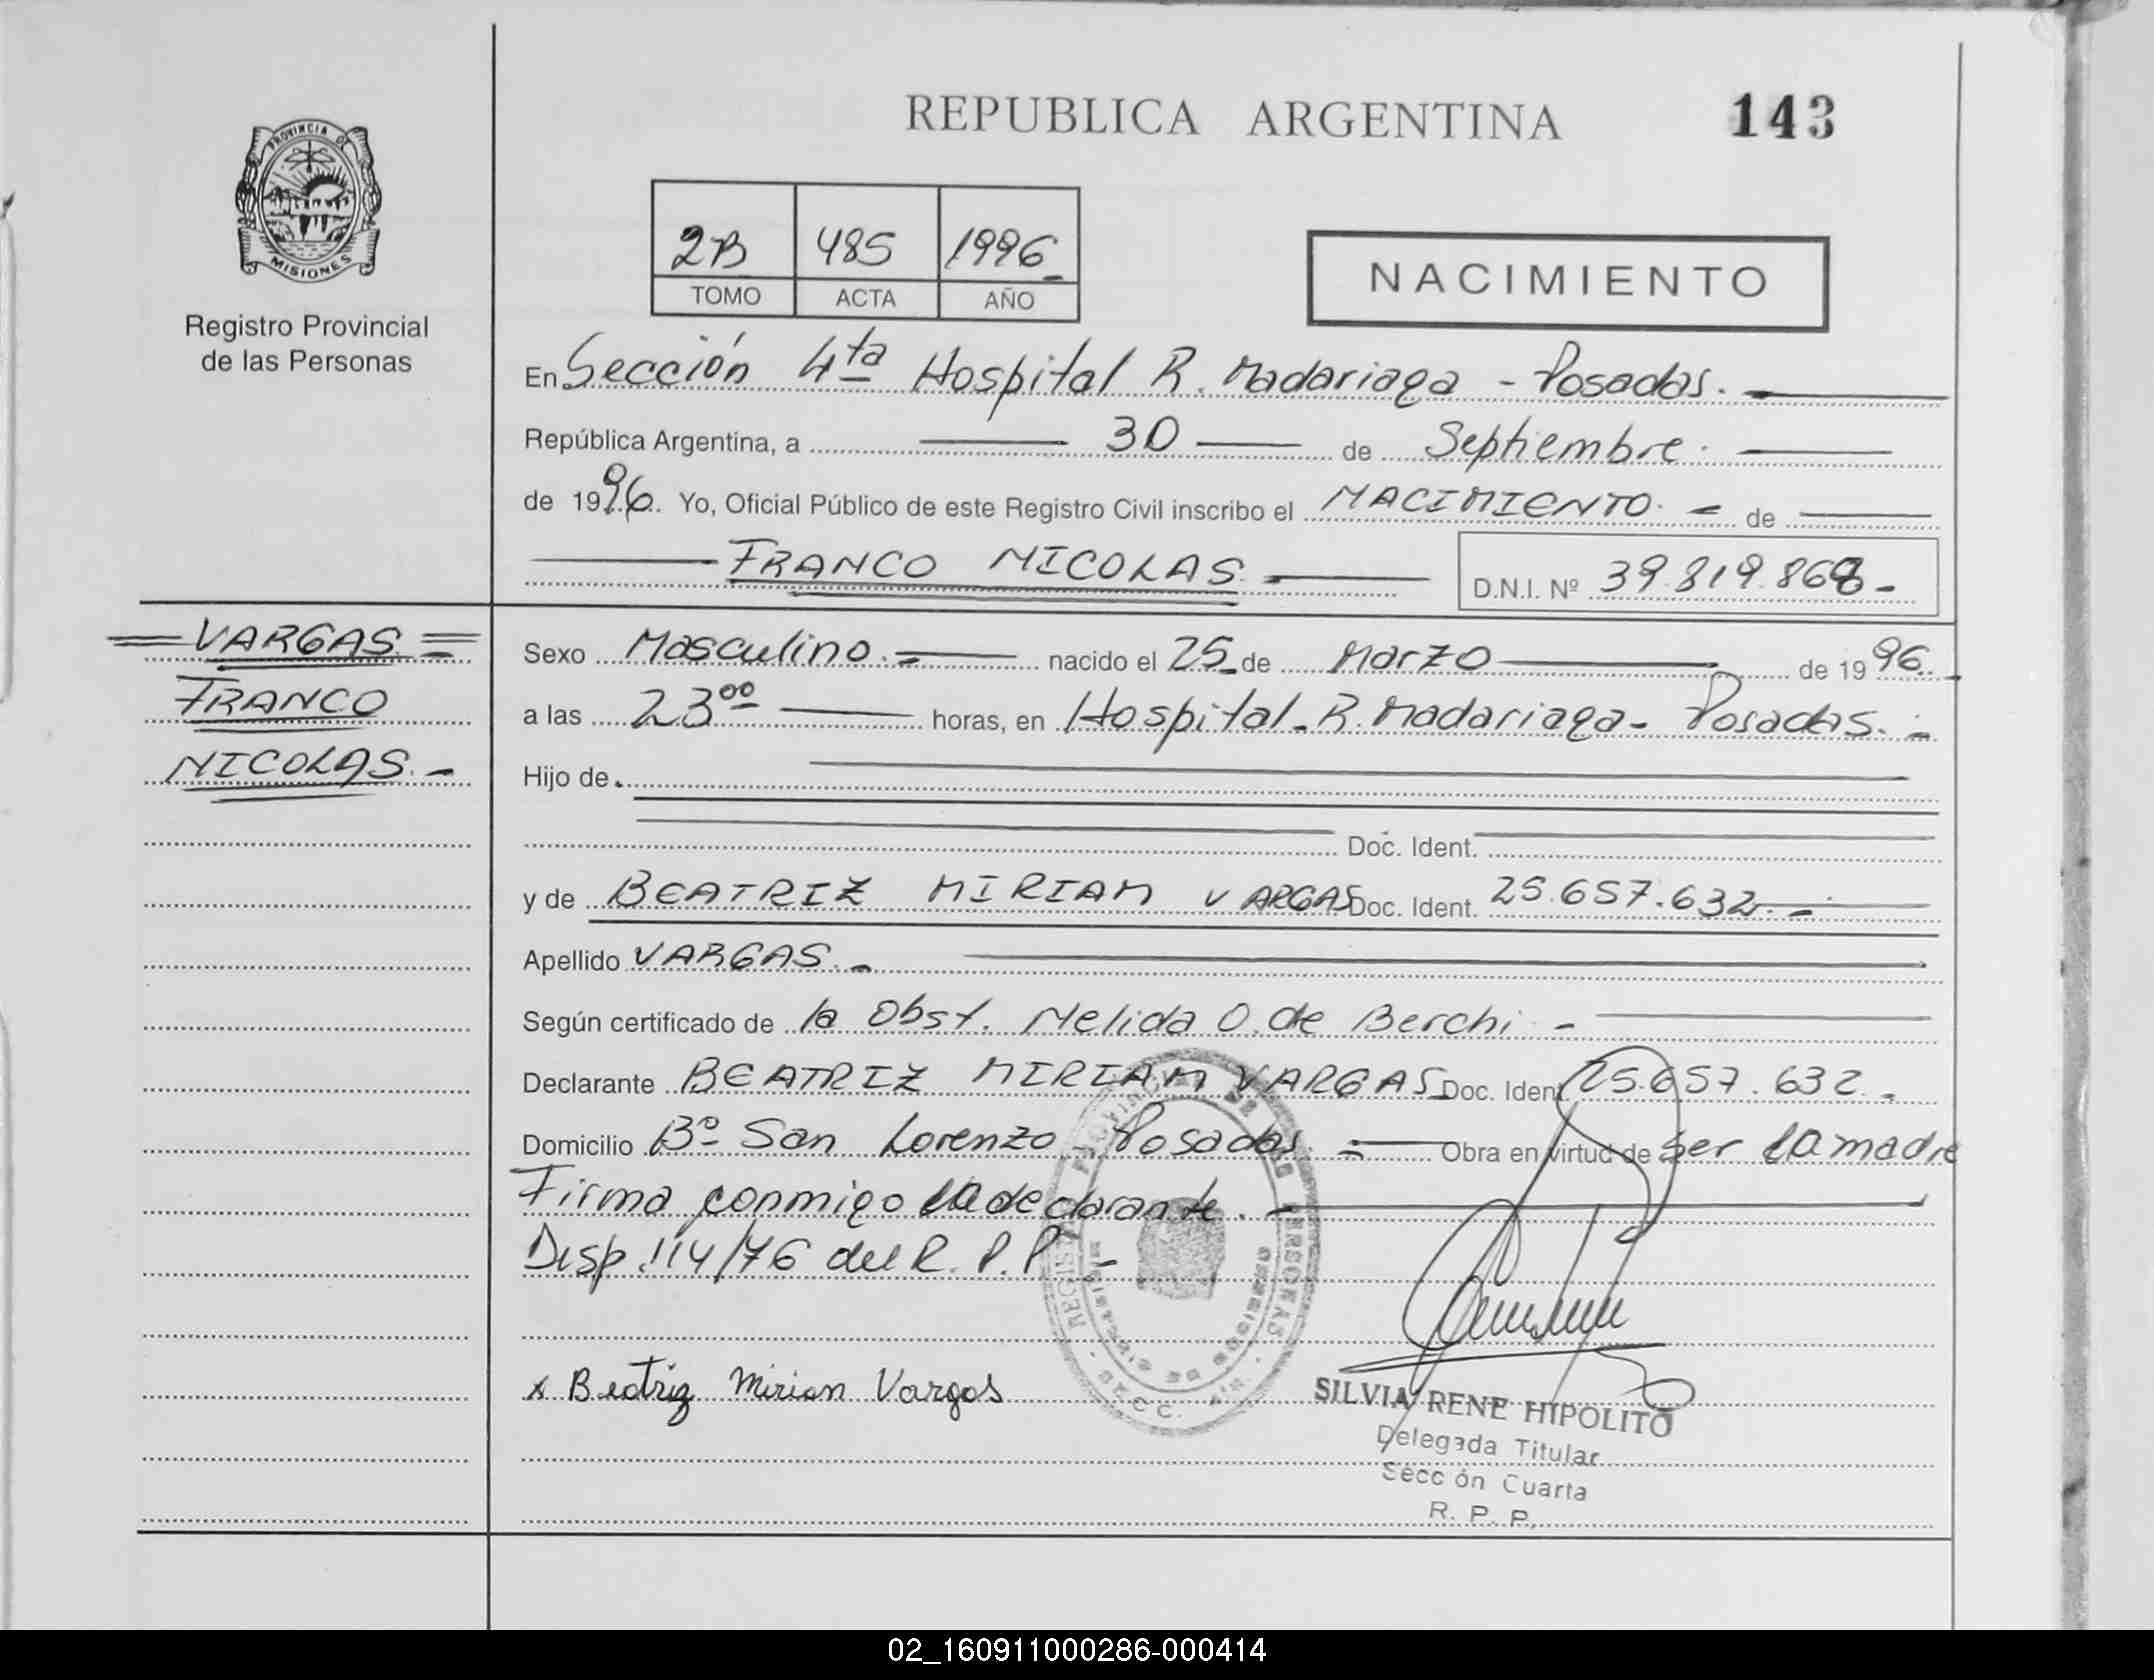 REPUBLICA ARGENTINA
143
PROVINCIA DE
MISIONES
Registro Provincial
de las Personas
2B 485 1996
TOMO ACTA AÑO
NACIMIENTO
En Sección 4ta Hospital R. Madariaga - Posadas.
República Argentina, a 30 de Septiembre.
de 1996. Yo, Oficial Público de este Registro Civil inscribo el NACIMIENTO. de
FRANCO NICOLAS
D.N.I. Nº 39.819.868
VARGAS
FRANCO
NICOLAS.
Sexo Masculino. nacido el 25 de Marzo de 1996.
a las 23⁰⁰ horas, en Hospital. R. Madariaga - Posadas.
Hijo de
Doc. Ident.
y de BEATRIZ MIRIAM VARGAS Doc. Ident. 25.657.632.
Apellido VARGAS.
Según certificado de la Obst. Nelida O. de Berchi.
Declarante BEATRIZ MIRIAM VARGAS Doc. Ident. 25.657.632.
Domicilio Bº San Lorenzo Posadas. Obra en virtud de ser la madre
Firma conmigo la declarante.
Disp. 114/76 del R. P. P.
x Beatriz Mirian Vargas
SILVIA RENE HIPOLITO
Delegada Titular
Sección Cuarta
R. P. P.
02_160911000286-000414